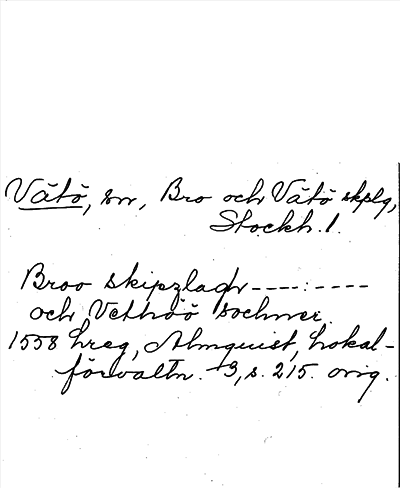 Vätö, sn, Bro och Vätö skplg,
Stockh. l.
Broo skipzlagh ----:----
och Vethöö sochner.
1558 hreg, Almquist, Lokal-
förvaltn. 3, s. 215. orig.